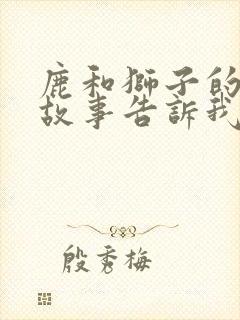 鹿和獅子的
故事告訴我
殷秀梅